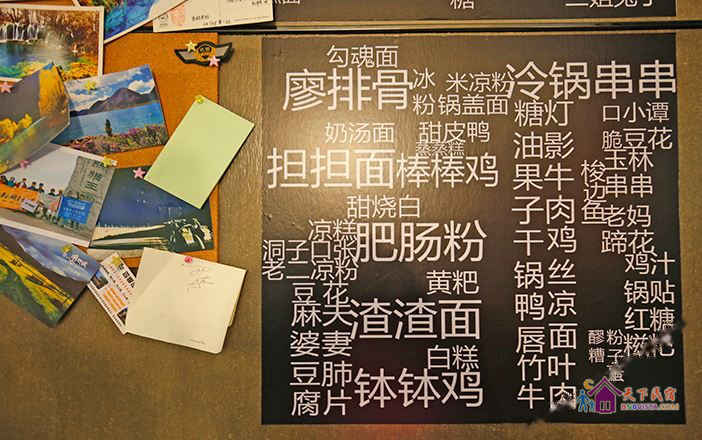 糖
勾魂面
廖排骨
冰粉
米凉粉
锅盖面
冷锅串串
奶汤面
甜皮鸭
蒸蒸糕
担担面
棒棒鸡
甜烧白
凉糕
洞子口张
老二凉粉
肥肠粉
豆花
黄粑
麻婆豆腐
夫妻肺片
渣渣面
白糕
钵钵鸡
糖油果子
灯影牛肉
干锅鸭唇
鸡丝凉面
竹叶
牛肉
口小谭
脆豆花
梭边鱼
玉林
串串
老妈
蹄花
鸡汁
锅贴
红糖
糍粑
醪糟
粉子蛋
天下民宿